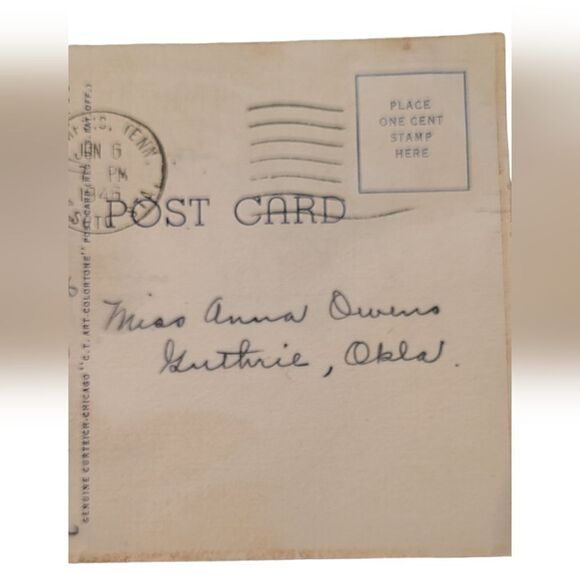 PLACE
ONE CENT
STAMP
HERE
TENN
JUN 6
PM
POST CARD
Miss Anna Owens
Guthrie, Okla.
GENUINE CURTEICH-CHICAGO "C. T. ART-COLORTONE" POST CARD (REG. U.S. PAT. OFF.)